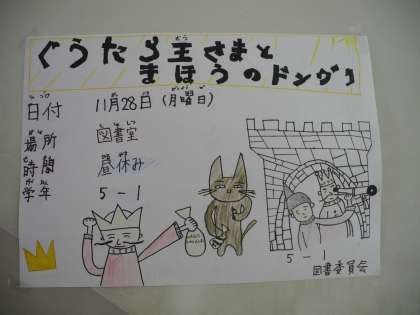 ぐうたら王さまと
まほうのドングリ
日付 11月28日(月曜日)
場所 図書室
時間 昼休み
学年 5-1
5-1
図書委員会